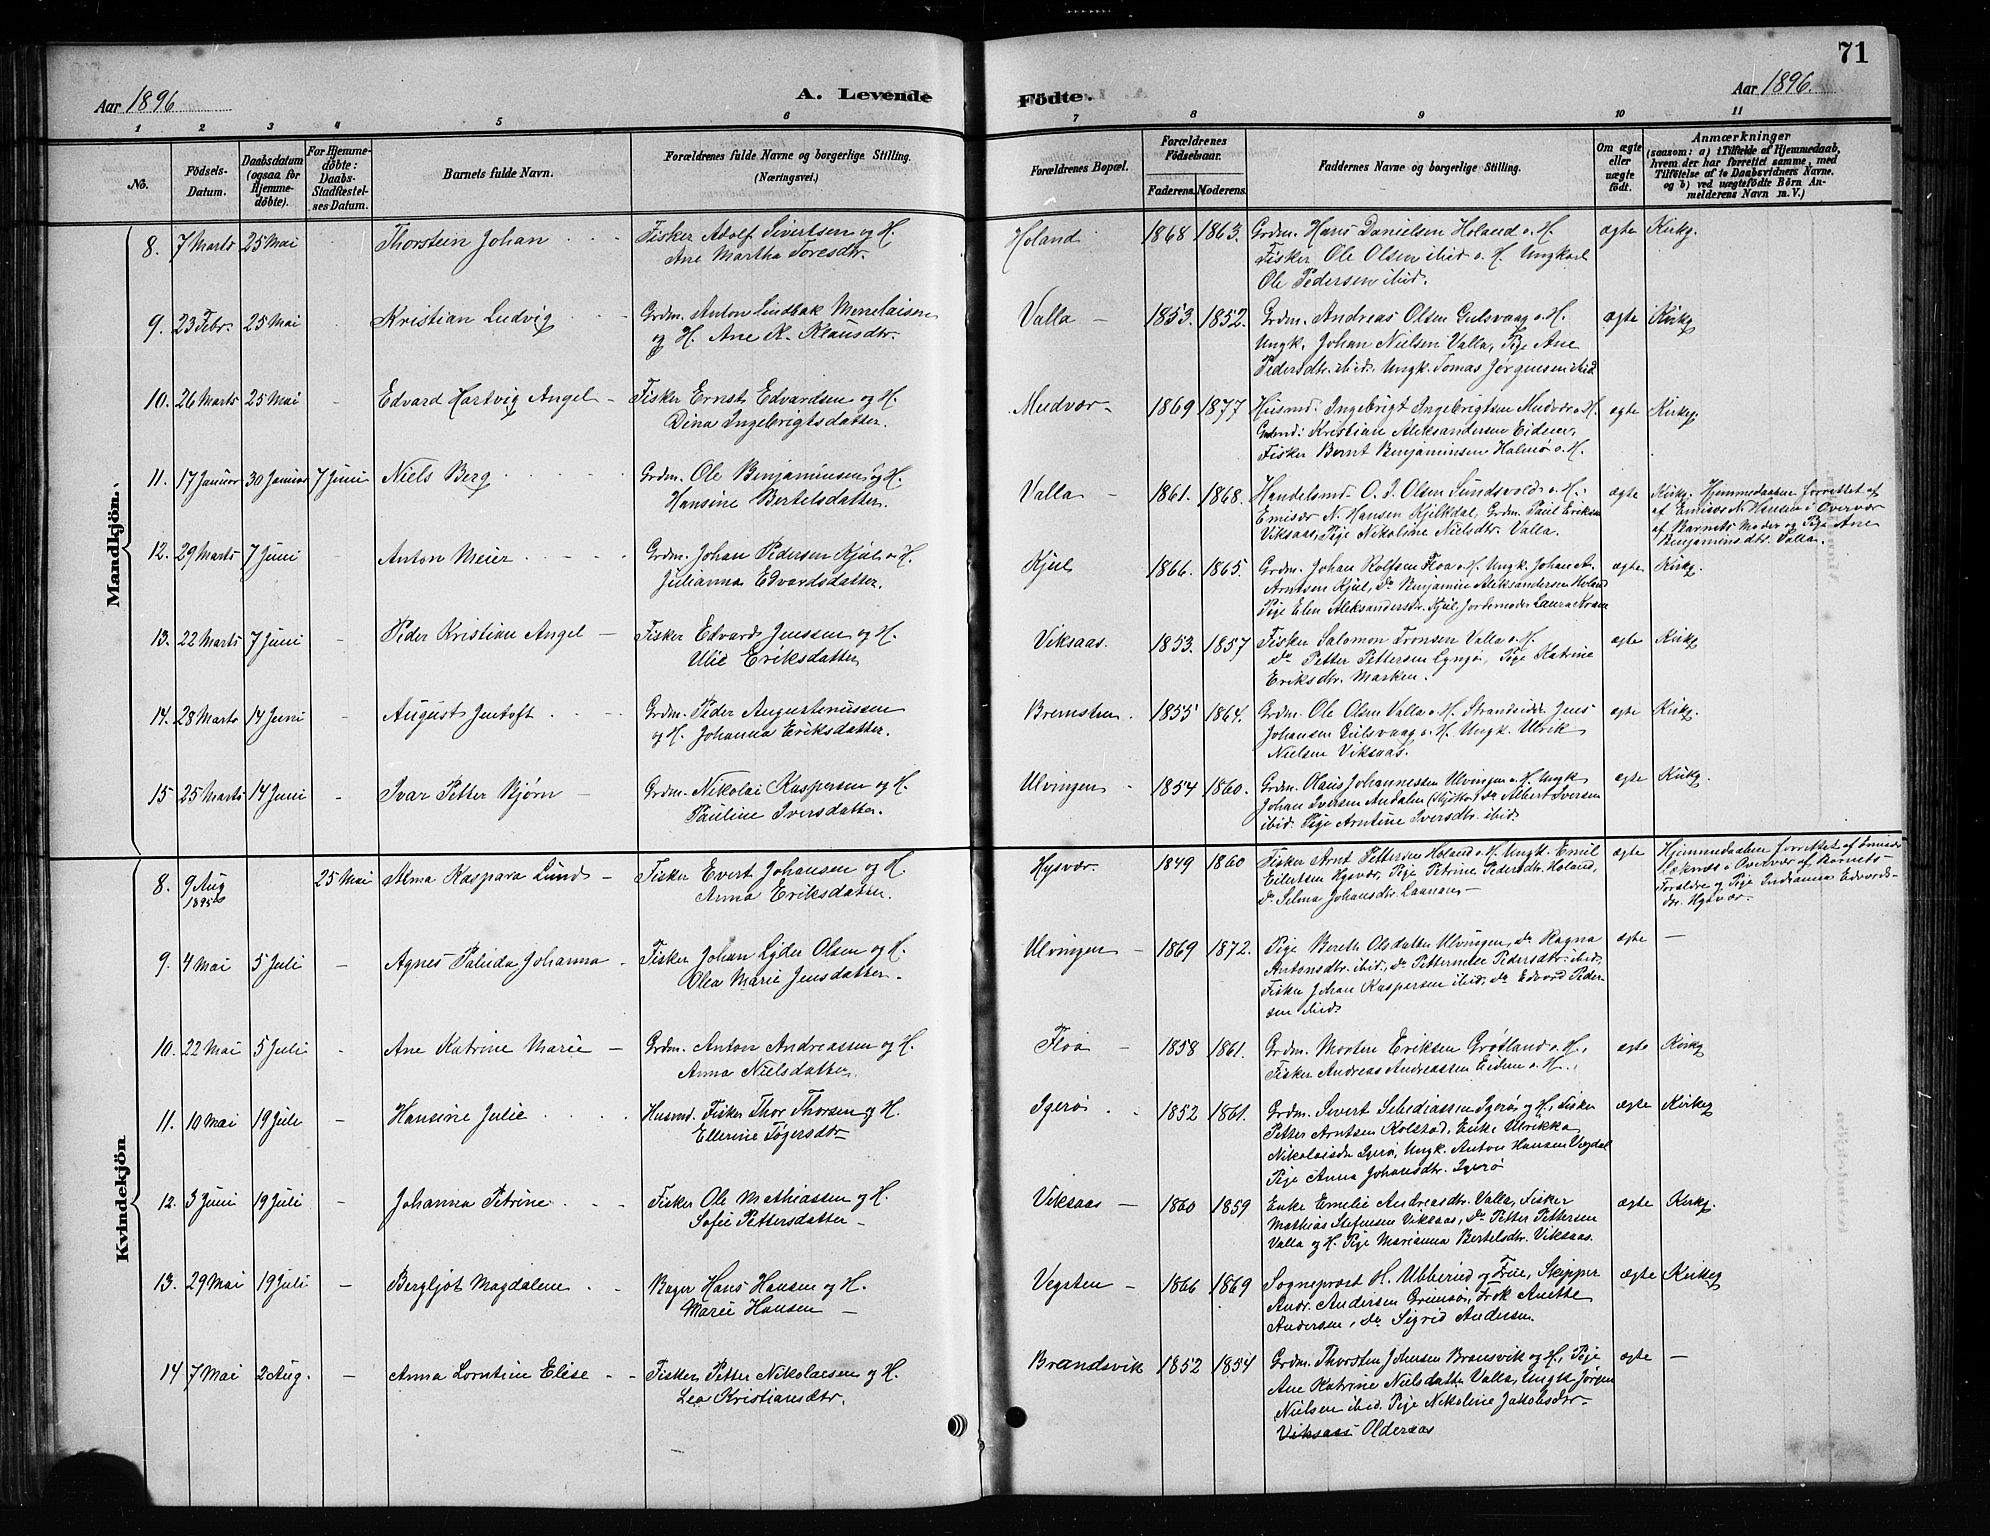 71
Aar 1896
A. Levende
Födte.
Aar 1896.
1 2 3 4 5 6 7 8 9 10 11
No.
Födsels-
Datum.
Daabsdatum
(ogsaa for
Hjemme-
döbte).
For Hjemme-
döbte:
Daabs-
Stadfæstel-
ses Datum.
Barnets fulde Navn.
Forældrenes fulde Navne og borgerlige Stilling.
(Næringsvei.)
Forældrenes Bopæl.
Forældrenes
Födselsaar.
Faderens. Moderens.
Faddernes Navne og borgerlige Stilling.
Om ægte
eller
uægte
födt.
Anmærkninger
(saasom: a) i Tilfælde af Hjemmedaab,
hvem der har forrettet samme, med
Tilföielse af to Daabsvidners Navne.
og b) ved uægtefödte Börn An-
melderens Navn m. V.)
Mandkjön.
8. 7 Marts 25 Mai Thorstein Johan
Fisker Adolf Sivertsen og H.
Ane Martha Toresdtr.
Holand 1868 1863.
Grdm. Hans Danielsen Holand o. H.
Fisker Ole Olsen ibid o. H. Ungkarl
Ole Pedersen ibid.
ægte Kirkg.
9. 23 Febr. 25 Mai Kristian Ludvig
Grdm. Anton Lindbak Menelaisen
og H. Ane K. Klausdtr.
Valla – 1853. 1852.
Grdm. Andreas Olsen Gulsvaag o. H.
Ungk. Johan Nielsen Valla, Pige Ane
Pedersdtr. ibid. Ungk. Tomas Jørgensen ibid
ægte Kirkg
10. 26 Marts 25 Mai - Edvard Hartvig Angel –
Fisker Ernst Edvardsen og H.
Dina Ingebrigtsdatter.
Mudvær – 1869 1877
Husmd. Ingebrigt Ingebrigtsen Mudvær o. H.
Grdmd. Kristian Aleksandersen Eidem,
Fisker Bernt Benjaminsen Holmø o. H.
ægte Kirkg.
11. 17 Januar 30 Januar 7 Juni Niels Berg
Grdm. Ole Benjaminsen og H.
Hansine Bertelsdatter.
Valla – 1861. 1868.
Handelsmd. O. J. Olsen Sundsvold o. H.
Emisær N. Hansen Kjelkdal, Grdm. Paul Eriksen
Viksaas, Pige Nikoline Nielsdtr. Valla.
ægte Kirkg. Hjemmedaaben forrettet af
af Emisær N. Hansen i Overvær
af Barnets Moder og Pige Ane
Benjaminsdtr. Valla.
12. 29 Marts 7 Juni - Anton Meier
Grdm. Johan Pedersen Kjul o. H.
Julianna Edvardsdatter.
Kjul 1866. 1865.
Grdm. Johan Rolfsen Floa o. H. Ungk. Johan An.
Arntsen Kjul, do Benjamin Aleksandersen Holand
Pige Elen Aleksandersdtr. Kjul, Jordemoder Laura Kran
ægte Kirkg.
13. 22 Marts 7 Juni – Peder Kristian Angel –
Fisker Edvard Jenssen og H.
Ulie Eriksdatter
Viksaas. 1853. 1857
Fisker Salomon Tronsen Valla o. H.
do Petter Pettersen Lyngø, Pige Katrine
Eriksdtr. Marken.
ægte Kirkg
14. 28 Marts 14 Juni - August Jentoft
Grdm. Peder Augustinussen
og H. Johanna Eriksdatter.
Bremsten. 1855 1864.
Grdm. Ole Olsen Valla o. H. Strandsidd. Jens
Johansen Gulsvaag o. H. Ungk. Ulrik
Nielsen Viksaas.
ægte Kirkg.
15 25 Marts 14 Juni - Ivar Petter Bjørn –
Grdm. Nikolai Kaspersen og H.
Pauline Iversdatter.
Ulvingen – 1854 1860.
Grdm. Olaus Johannessen Ulvingen o. H. Ungk
Johan Iversen Andalen do Albert Iversen
ibid. Pige Arntine Iversdtr. ibid.
ægte Kirkg.
Kvindekjön
8. 9 Aug 1895 25 Mai Alma Kaspara Lund –
Fisker Evert Johansen og H.
Anna Eriksdatter.
Hysvær. 1849 1860
Fisker Arnt Pettersen Holand o. H. Ungk. Emil
Eilertsen Hysvær, Pige Petrine Pedersdtr. Holand,
do Selma Johansdtr. Laanan, –
ægte Hjemmedaaben forrettet af
i Overvær af Barnets
Forældre og Pige Indianna Edvards-
dtr. Hysvær.
9. 4 Mai 5 Juli – Agnes Palida Johanna
Fisker Johan Lyder Olsen og H.
Olea Marie Jensdatter.
Ulvingen – 1869 1872.
Pige Bereth Olsdatter Ulvingen, do Ragna
Antonsdtr. ibid., do Petternelle Pedersdtr. ibid,
Fisker Johan Kaspersen ibid, do Edvard Peder-
sen ibid.
ægte –
10. 22 Mai 5 Juli - Ane Katrine Marie –
Grdm. Anton Andreassen og H.
Anna Nielsdatter.
Floa – 1858 1861.
Grdm. Morten Eriksen Grøtland o. H.,
Fisker Andreas Andreassen Eidem o. H.
ægte Kirkg
11. 10 Mai 19 Juli – Hansine Julie
Husmd. Fisker Thor Thorsen og H.
Ellerine Tøgersdtr
Igerø 1852 1861.
Grdm. Sivert Sebediassen Igerø og H., Fisker
Petter Arntsen Kolstad, Enke Ulrikka
Nikolaisdtr. Igerø, Ungk. Anton Hansen Vegdal
Pige Anna Johansdtr. Igerø
ægte Kirkeg
12. 3 Juni 19 Juli – Johanna Petrine
Fisker Ole Mathiassen og H.
Sofie Pettersdatter –
Viksaas – 1860 1859
Enke Emelie Andreasdtr. Valla, Fisker
Mathias Stefensen Viksaas, do Petter Pettersen
Valla og H. Pige Marianna Bertelsdtr. Viksaas.
ægte Kirkg.
13. 29 Mai 19 Juli – Bergljot Magdalene
Bager Hans Hansen og H.
Marie Hansen –
Vegsten – 1866 1869
Sogneprest H. Ubberud og Frue, Skipper
Andr. Andersen Grimsøi, Frøk Anethe
Andersen, do Sigrid Andersen.
ægte Kirkeg
14 7 Mai 2 Aug. – Anna Lorntine Elise
Fisker Petter Nikolaisen og H.
Lea Kristiansdtr.
Brandsvik 1852 1854
Grdm. Thorsten Johnsen Bransvik og H., Pige
Ane Katrine Nielsdatter Valla, Ungk. Jørgen
Nielsen ibid. Pige Nikoline Jakobsdtr
Viksaas Olderaas
ægte –